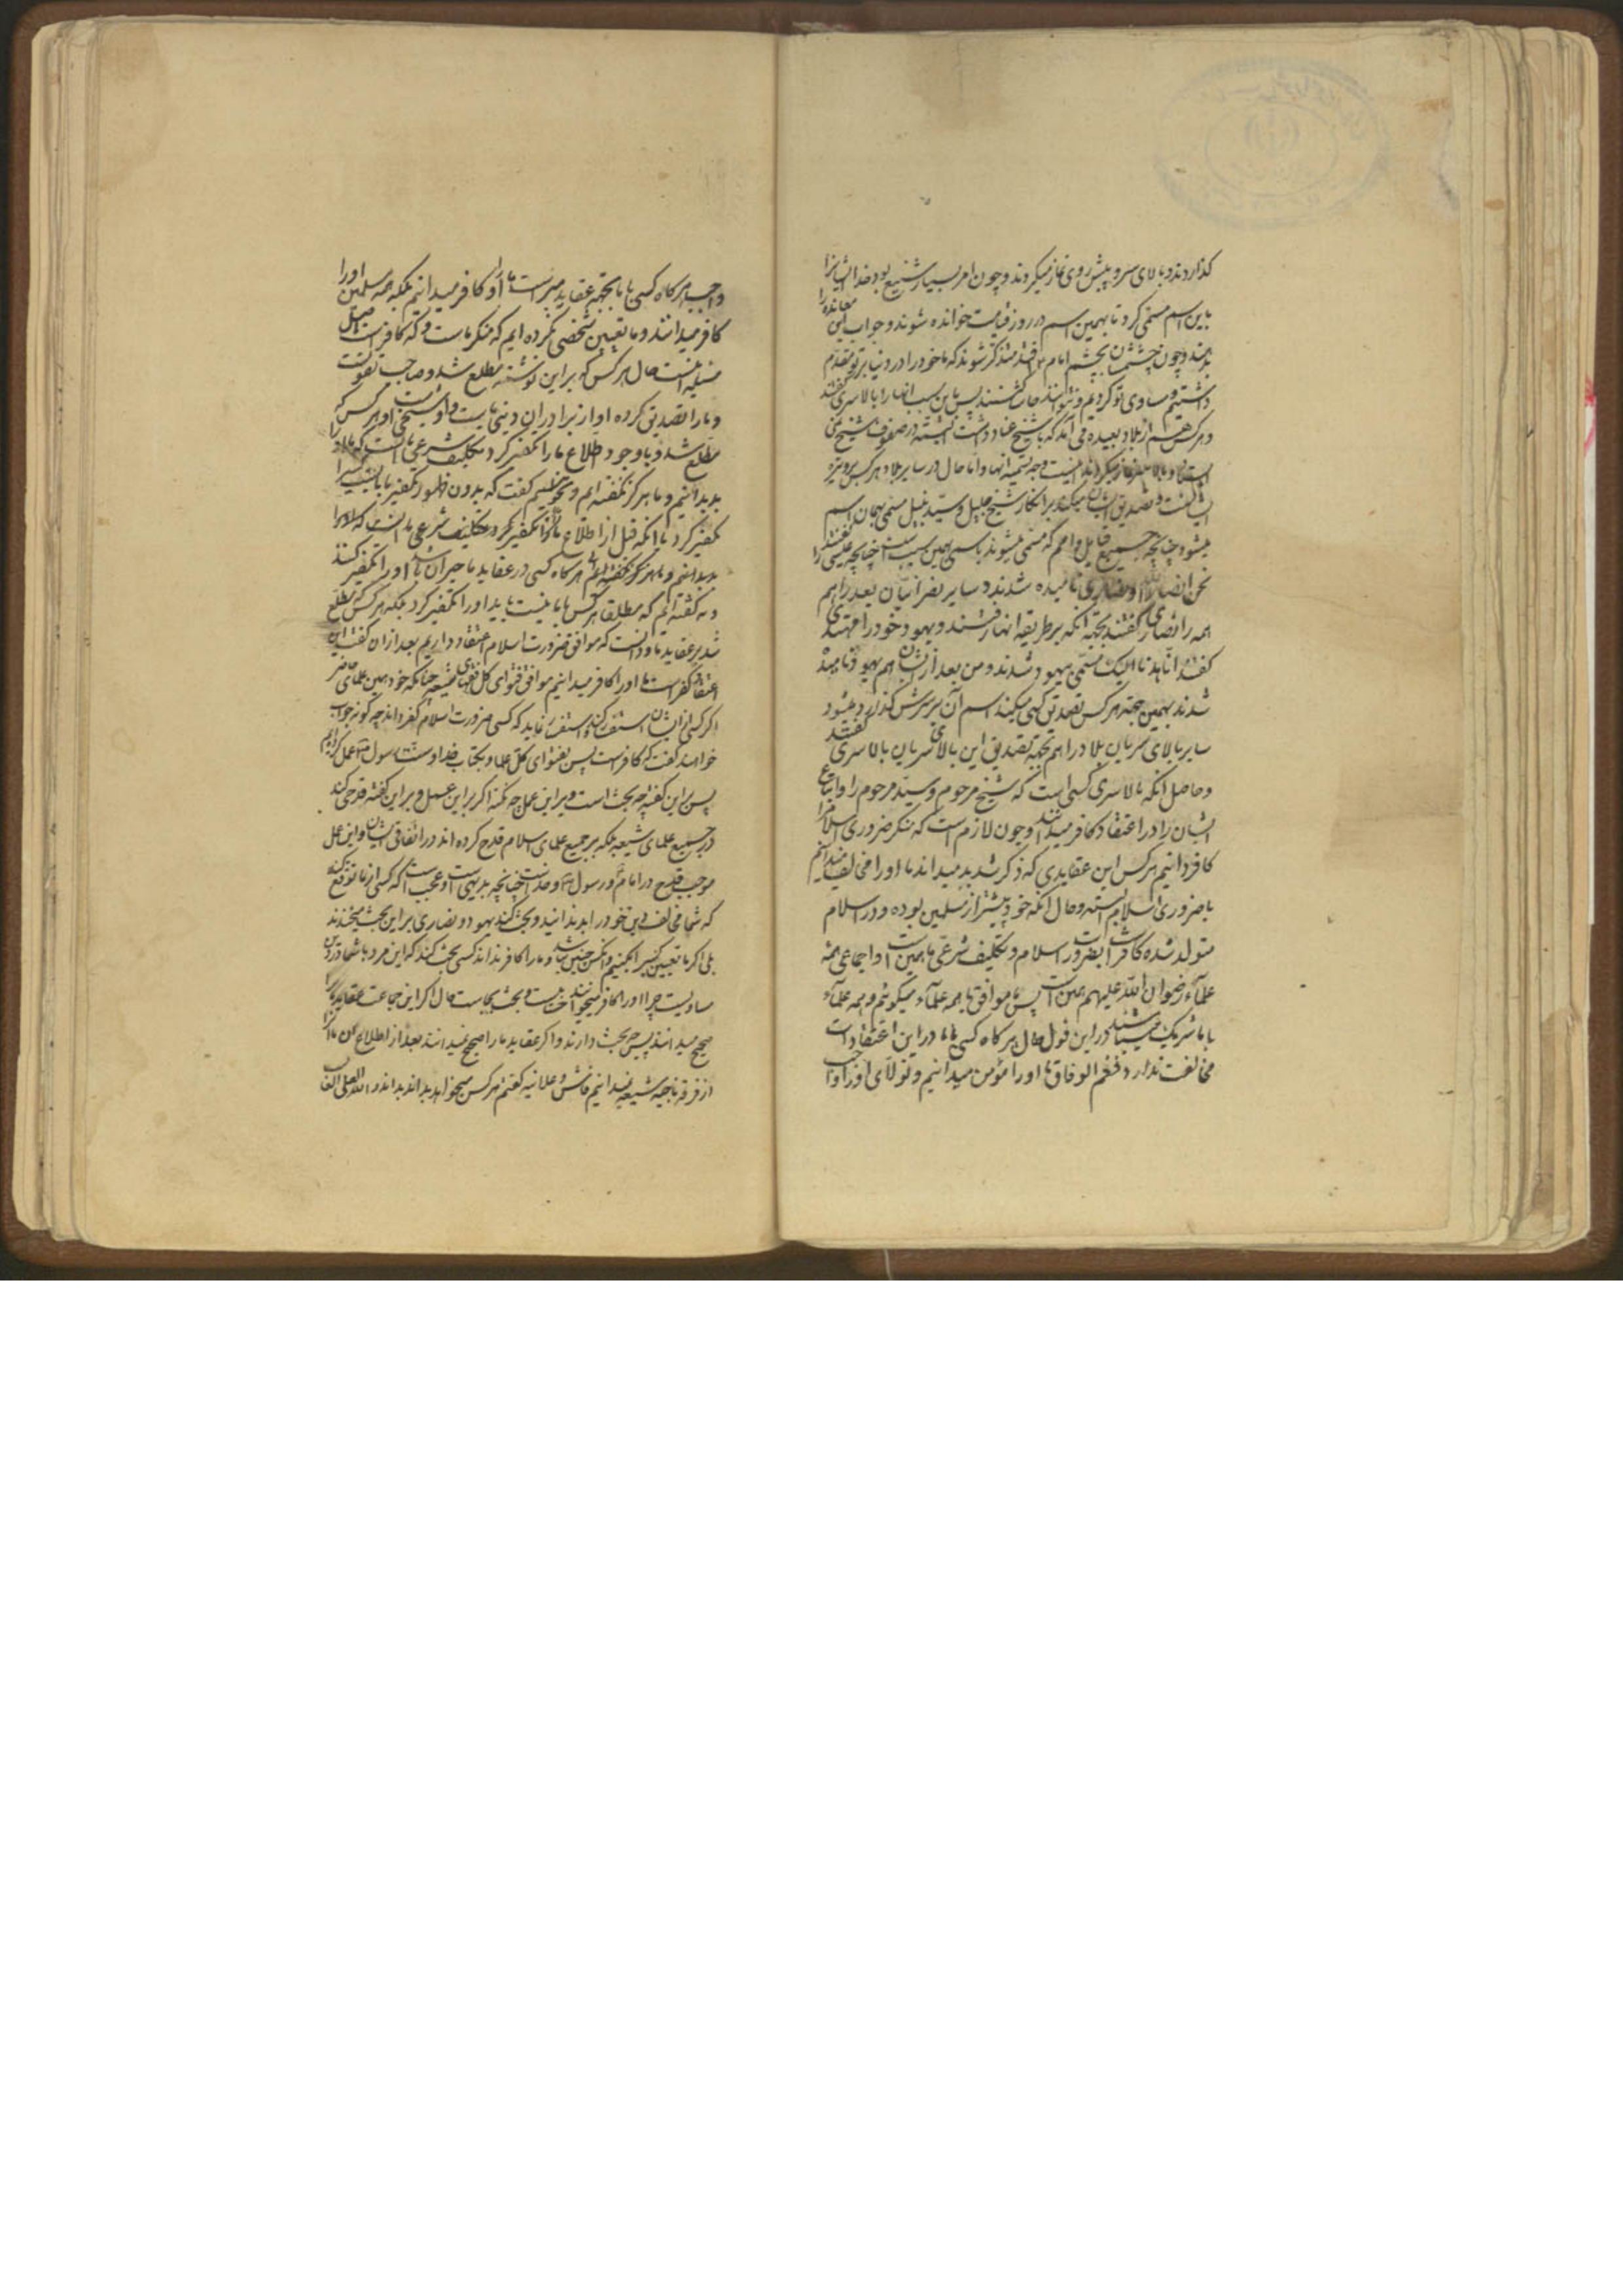 گذاردند و بالای سر و پیش روی نماز میکردند و چون امر بسیار شنیع بود خدا ایشانرا
باین اسم مسمی کرد تا بهمین اسم در روز قیامت خوانده شوند و جواب این معانده را
بدهند و چون چشمشان بچشم امام افتد متذکر شوند که ما خود را در دنیا بر تو مقدم
داشتیم و مساوی تو کردیم و نتوانند حاشا کنند پس باین سبب آنها را بالاسری گفتند
و هر کس هم از بلاد بعیده می آمد که با شیخ عناد داشت
اینست وجه تسمیه آنها و اما حال در سایر بلاد هر کس
تصدیق ایشان میکند بر انکار شیخ جلیل و سید نبیل مسمی بهمان اسم
میشود چنانچه جمیع قبایل و امم که مسمی میشوند باسمی بهمین سبب است چنانچه عیسی را گفتند
نحن انصار الله و نصاری نامیده شدند و سایر نصرانیان بعد را هم
همه را نصاری گفتند بجهة آنکه بر طریقه آنها رفتند و یهود خود را
گفتند انا هدنا الیک مسمی بیهود شدند و من بعد از ایشان هم یهود نامیده
شدند بهمین جهة هر کس تصدیق کسی میکند اسم آن بر سرش گذارده میشود
سایر بالای سریان بلاد را هم بجهة تصدیق این بالای سریان بالاسری گفتند
و حاصل آنکه بالاسری کسی است که شیخ مرحوم و سید مرحوم را و اتباع
ایشان را در اعتقاد کافر میدانند و چون لازم است که منکر ضروری اسلام را
کافر دانیم هر کس این عقایدی که ذکر شد بد میداند ما او را مخالف میدانیم
با ضروری اسلام و حال آنکه خود پیشتر از مسلمین بوده و در اسلام
متولد شده کافر است بضرورت اسلام و تکلیف شرعی ما همین است و اجماعی همه
علماء رضوان الله علیهم همین است پس ما موافق با همه علماء میگوئیم و همه علماء
با ما شریک میباشند در این قول حال هر گاه کسی با ما در این اعتقادات
مخالفت ندارد فنعم الوفاق ما او را مؤمن میدانیم و تولای او را واجب
واجب هر گاه کسی با ما بجهة عقاید میبر است ما او را کافر میدانیم بلکه همه مسلمین او را
کافر میدانند و ما تعیین شخصی نکرده ایم که منکر ماست و که کافر است اصل
مسئله اینست حال هر کس که بر این نوشته مطلع شد و صاحب تقوی است
و ما را تصدیق کرده او از برادران دینی ماست و هر کس که
مطلع شد و با وجود اطلاع ما را تکفیر کرد تکلیف شرعی ما آنست که ما او را
بد بدانیم و ما هرگز نگفته ایم و نخواهیم گفت که بدون ظهور تکفیر ما باید کسی را
تکفیر کرد یا آنکه قبل از اطلاع ما تکفیر کرد و تکلیف شرعی ما اینست که او را
بد بدانیم و ما هرگز نگفته ایم هر گاه کسی در عقاید ما حیران باشد او را تکفیر کنند
و نه گفته ایم که مطلقا هر کس با ما نیست باید او را تکفیر کرد بلکه هر کس که مطلع
شد بر عقاید ما و دانست که موافق ضرورت اسلام اعتقاد داریم بعد از آن گفت این
اعتقاد کفر است ما او را کافر میدانیم موافق فتوای کل فقهای شیعه چنانکه خود همین علمای حاضر
اگر کسی از ایشان استفسار نماید که کسی ضرورت اسلام را کفر داند چه گونه جواب
خواهند گفت که کافر است پس بفتوای کل علما و بکتاب خدا و سنت رسول عمل کرده ایم
پس بر این گفته چه بحث است و بر این عمل چه نکته اگر بر این عمل و بر این گفته قدحی کند
بر جمیع علمای شیعه بلکه بر جمیع علمای اسلام قدح کرده اند در اتفاق ایشان و این عمل
موجب قدح در امام و رسول و خداست چنانچه بدیهی است و عجب است که کسی از ما توقع کند
که شما مخالف دین خود را بد ندانید و بحث کند یهود و نصاری بر این بحث میخندند
بلی اگر ما تعیین کسی را بکنیم و آنکس چنین نباشد و ما را کافر نداند کسی بحث کند که این مرد با شما در دین
مساویست چرا او را کافر میخوانید و بحث بیجاست حال اگر این جماعت عقاید ما را
صحیح میدانند پس چه بحث دارند و اگر عقاید ما را صحیح نمیدانند بعد از اطلاع
از فرقه ناجیه شیعه نمیدانیم فاش و علانیه گفتیم هر کس میخواهد بداند بداند